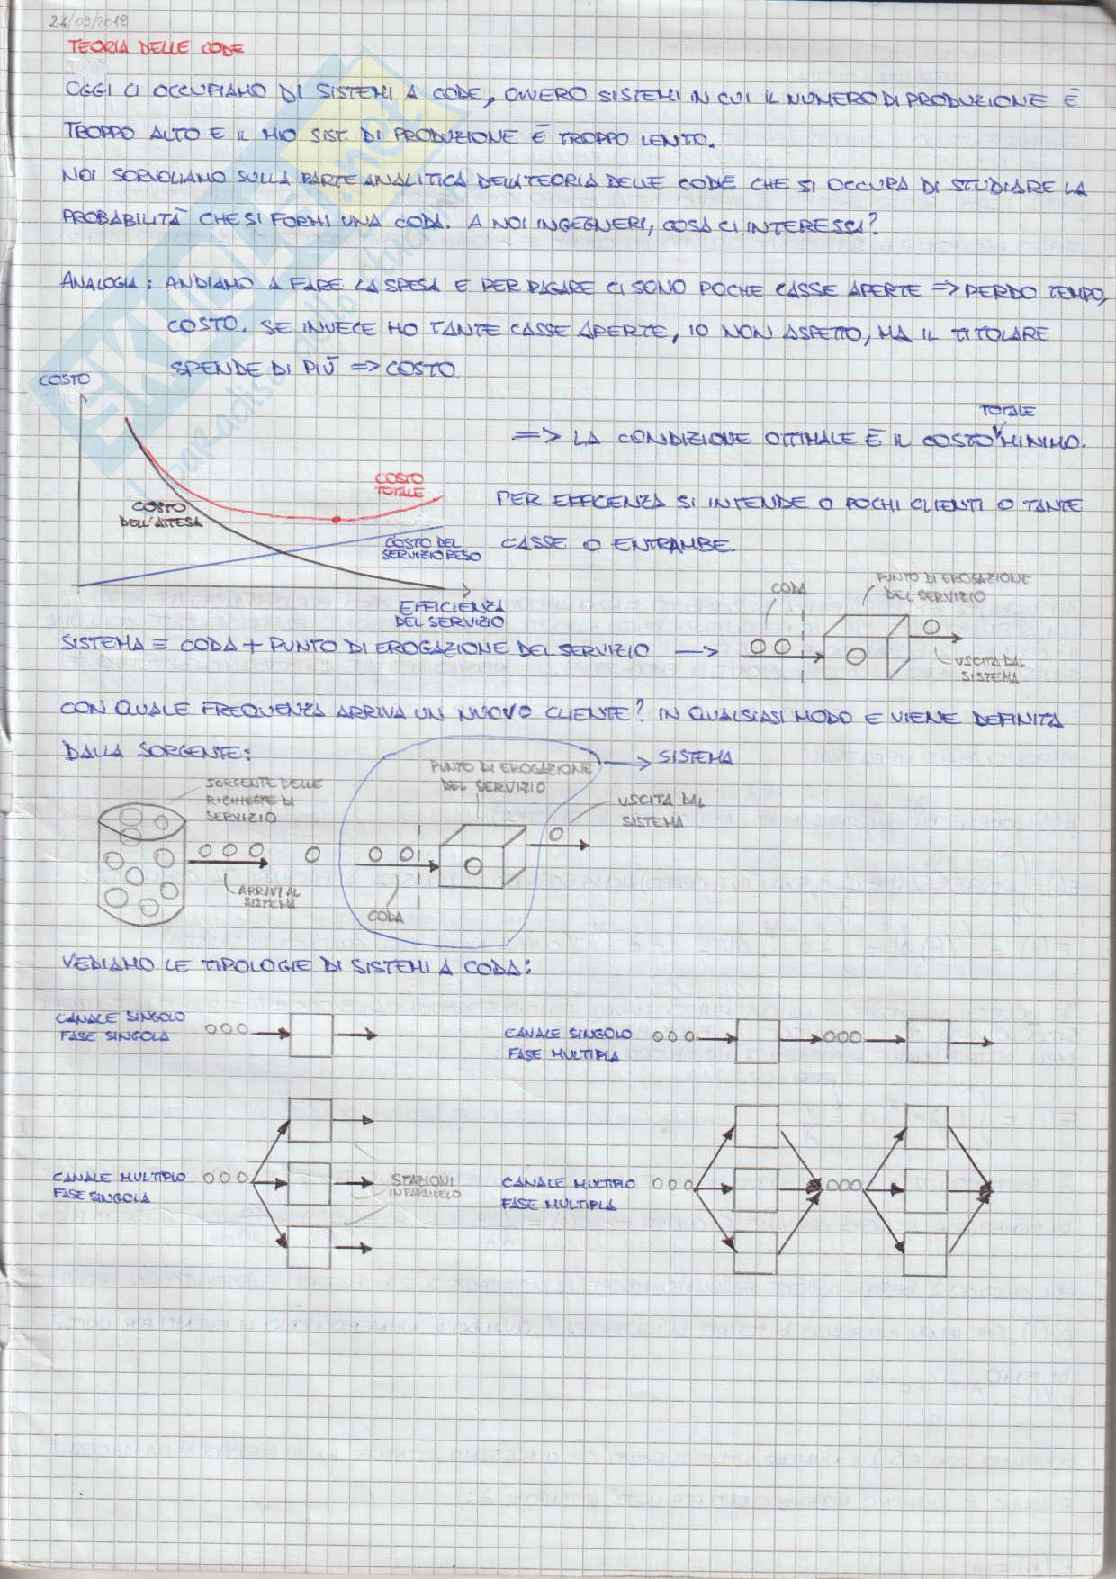 24/09/2019
TEORIA DELLE CODE
OGGI CI OCCUPIAMO DI SISTEMI A CODE, OVVERO SISTEMI IN CUI IL NUMERO DI PRODUZIONE È
TROPPO ALTO E IL MIO SIST DI PRODUZIONE È TROPPO LENTO.
NOI SORVOLIAMO SULLA PARTE ANALITICA DELLA TEORIA DELLE CODE CHE SI OCCUPA DI STUDIARE LA
PROBABILITÀ CHE SI FORMI UNA CODA. A NOI INGEGNERI, COSA CI INTERESSA?
ANALOGIA: ANDIAMO A FARE LA SPESA E PER PAGARE CI SONO POCHE CASSE APERTE => PERDO TEMPO,
COSTO. SE INVECE HO TANTE CASSE APERTE, IO NON ASPETTO, MA IL TITOLARE
SPENDE DI PIÙ => COSTO
COSTO
TOTALE
=> LA CONDIZIONE OTTIMALE È IL COSTO MINIMO.
COSTO
TOTALE
COSTO
DELL'ATTESA
PER EFFICENZA SI INTENDE O POCHI CLIENTI O TANTE
CASSE O ENTRAMBE.
COSTO DEL
SERVIZIO RESO
EFFICIENZA
DEL SERVIZIO
CODA
PUNTO DI EROGAZIONE
DEL SERVIZIO
SISTEMA = CODA + PUNTO DI EROGAZIONE DEL SERVIZIO →
USCITA DAL
SISTEMA
CON QUALE FREQUENZA ARRIVA UN NUOVO CLIENTE? IN QUALSIASI MODO E VIENE DEFINITA
DALLA SORGENTE:
SISTEMA
PUNTO DI EROGAZIONE
DEL SERVIZIO
SORGENTE DELLE
RICHIESTE DI
SERVIZIO
USCITA DAL
SISTEMA
ARRIVI AL
SISTEMA
CODA
VEDIAMO LE TIPOLOGIE DI SISTEMI A CODA:
CANALE SINGOLO
FASE SINGOLA
CANALE SINGOLO
FASE MULTIPLA
CANALE MULTIPLO
FASE SINGOLA
STAZIONI
IN PARALLELO
CANALE MULTIPLO
FASE MULTIPLA